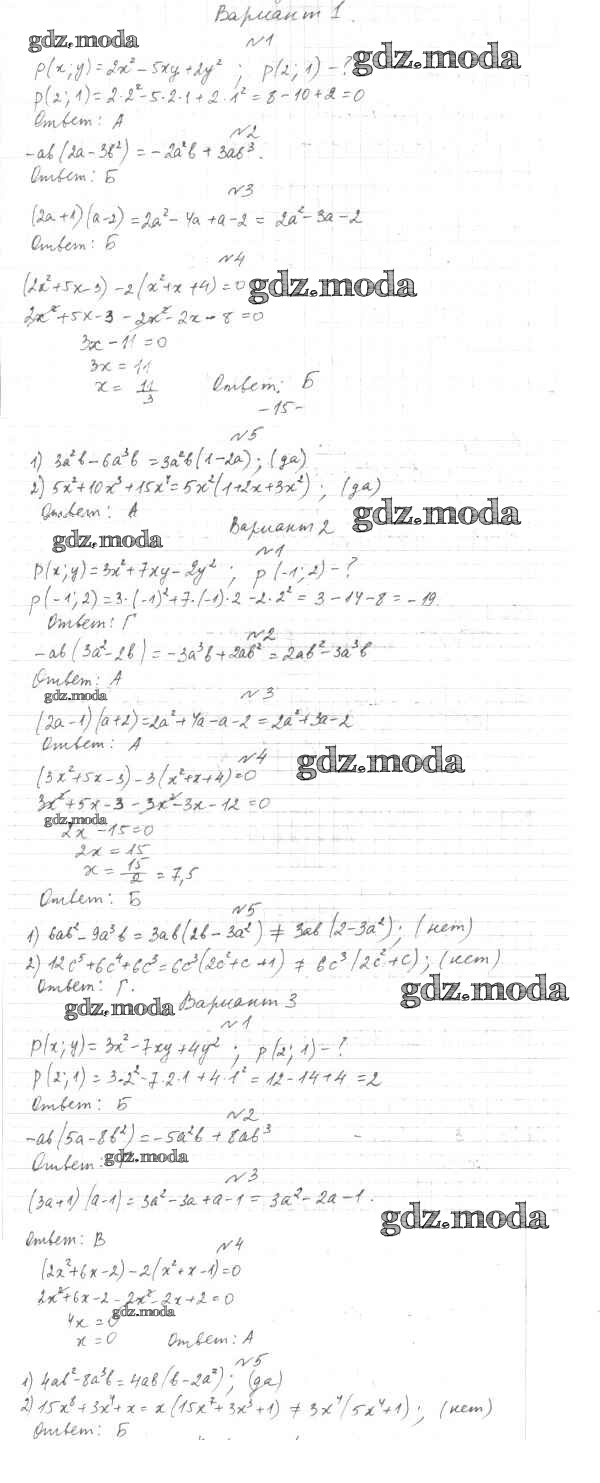 Вариант 1.
gdz.moda
№1
gdz.moda
p(x;y)=2x²-5xy+2y² ; p(2;1)-?
p(2;1)=2·2²-5·2·1+2·1²=8-10+2=0
Ответ: А
№2
-ab(2a-3b²)=-2a²b+3ab³.
Ответ: Б
№3
(2a+1)(a-2)=2a²-4a+a-2=2a²-3a-2
Ответ: Б
№4
(2x²+5x-3)-2(x²+x+4)=0
gdz.moda
2x²+5x-3-2x²-2x-8=0
3x-11=0
3x=11
x=11/3 Ответ: Б
-15-
№5
1) 3a²b-6a³b=3a²b(1-2a); (да)
2) 5x²+10x³+15x⁴=5x²(1+2x+3x²); (да)
Ответ: А
gdz.moda
Вариант 2
gdz.moda
№1
p(x;y)=3x²+7xy-2y² ; p(-1;2)-?
p(-1;2)=3·(-1)²+7·(-1)·2-2·2²=3-14-8=-19.
Ответ: Г
№2
-ab(3a²-2b)=-3a³b+2ab²=2ab²-3a³b
Ответ: А
gdz.moda
№3
(2a-1)(a+2)=2a²+4a-a-2=2a²+3a-2
Ответ: А
№4
gdz.moda
(3x²+5x-3)-3(x²+x+4)=0
3x²+5x-3-3x²-3x-12=0
gdz.moda
2x-15=0
2x=15
x=15/2=7,5
Ответ: Б
№5
1) 6ab²-9a³b=3ab(2b-3a²)≠3ab(2-3a²); (нет)
2) 12c⁵+6c⁴+6c³=6c³(2c²+c+1)≠6c³(2c²+c); (нет)
Ответ: Г.
gdz.moda
gdz.moda
Вариант 3
№1
p(x;y)=3x²-7xy+4y² ; p(2;1)-?
p(2;1)=3·2²-7·2·1+4·1²=12-14+4=2
Ответ: Б
№2
-ab(5a-8b²)=-5a²b+8ab³
Ответ:
gdz.moda
№3
(3a+1)(a-1)=3a²-3a+a-1=3a²-2a-1.
gdz.moda
Ответ: В
№4
(2x²+6x-2)-2(x²+x-1)=0
2x²+6x-2-2x²-2x+2=0
gdz.moda
4x=0
x=0 Ответ: А
№5
1) 4ab²-8a³b=4ab(b-2a²); (да)
2) 15x⁸+3x⁴+x=x(15x⁷+3x³+1)≠3x⁴(5x⁴+1); (нет)
Ответ: Б